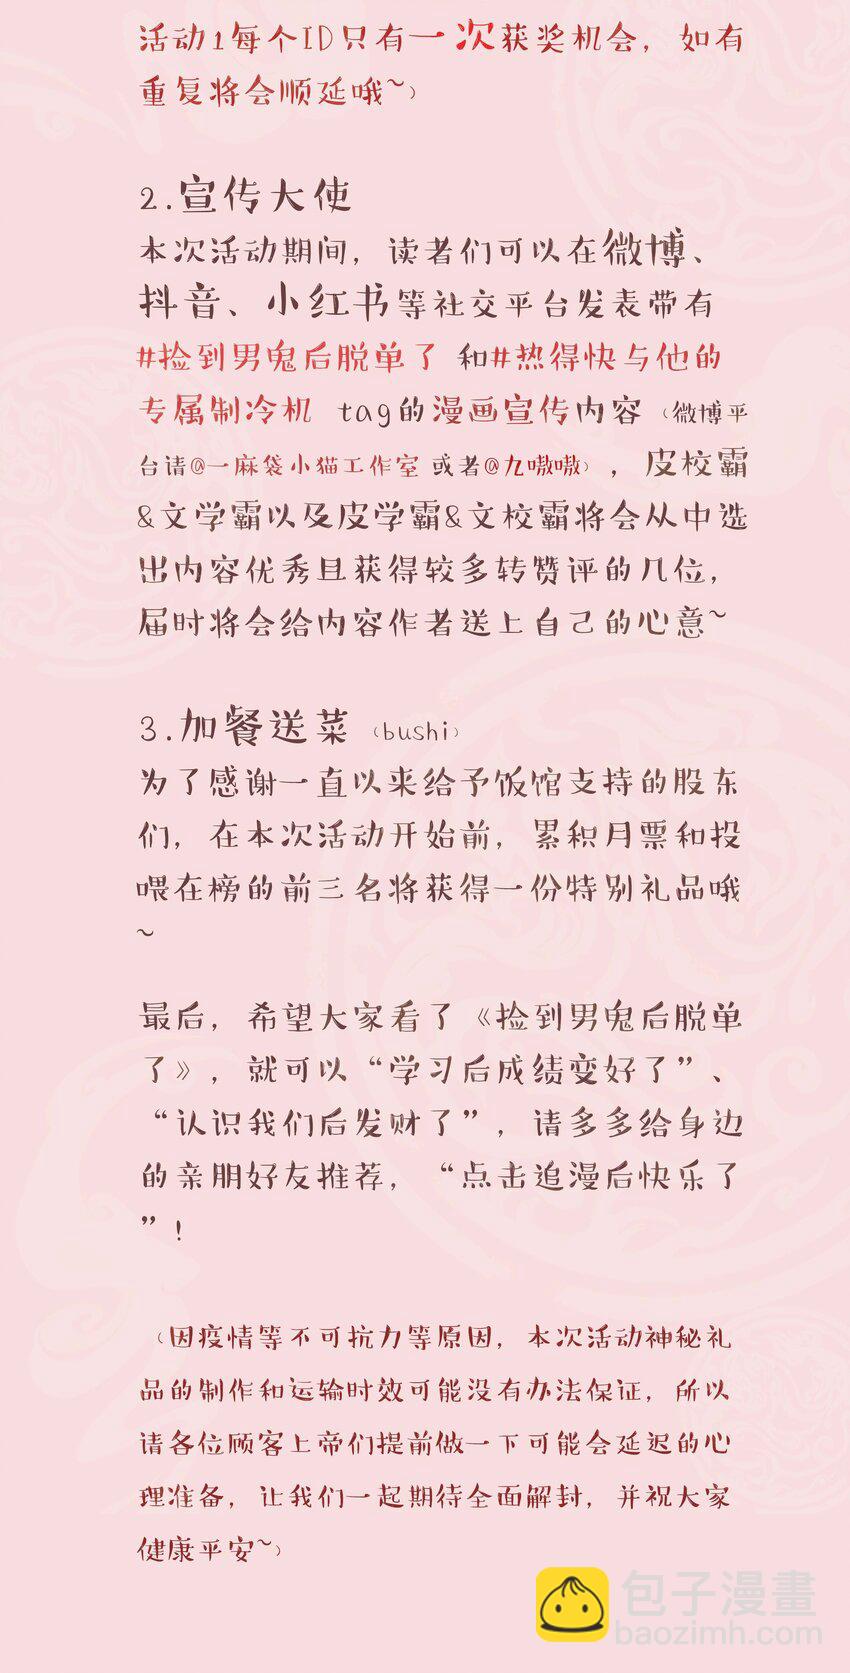 活动1每个ID只有一次获奖机会，如有
重复将会顺延哦~）
2.宣传大使
本次活动期间，读者们可以在微博、
抖音、小红书等社交平台发表带有
#捡到男鬼后脱单了 和#热得快与他的
专属制冷机 tag的漫画宣传内容（微博平
台请@一麻袋小猫工作室 或者@九嗷嗷），皮校霸
&文学霸以及皮学霸&文校霸将会从中选
出内容优秀且获得较多转赞评的几位，
届时将会给内容作者送上自己的心意~
3.加餐送菜（bushi）
为了感谢一直以来给予饭馆支持的股东
们，在本次活动开始前，累积月票和投
喂在榜的前三名将获得一份特别礼品哦
~
最后，希望大家看了《捡到男鬼后脱单
了》，就可以“学习后成绩变好了”、
“认识我们后发财了”，请多多给身边
的亲朋好友推荐，“点击追漫后快乐了
”！
（因疫情等不可抗力等原因，本次活动神秘礼
品的制作和运输时效可能没有办法保证，所以
请各位顾客上帝们提前做一下可能会延迟的心
理准备，让我们一起期待全面解封，并祝大家
健康平安~）
包子漫畫
baozimh.com